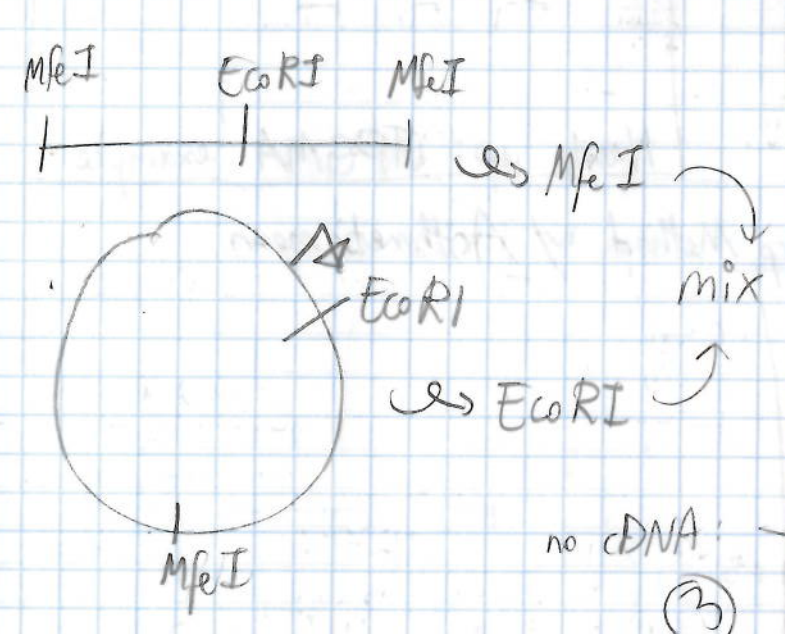 MfeI EcoRI MfeI
MfeI
mix
EcoRI
EcoRI
MfeI
no cDNA:
3